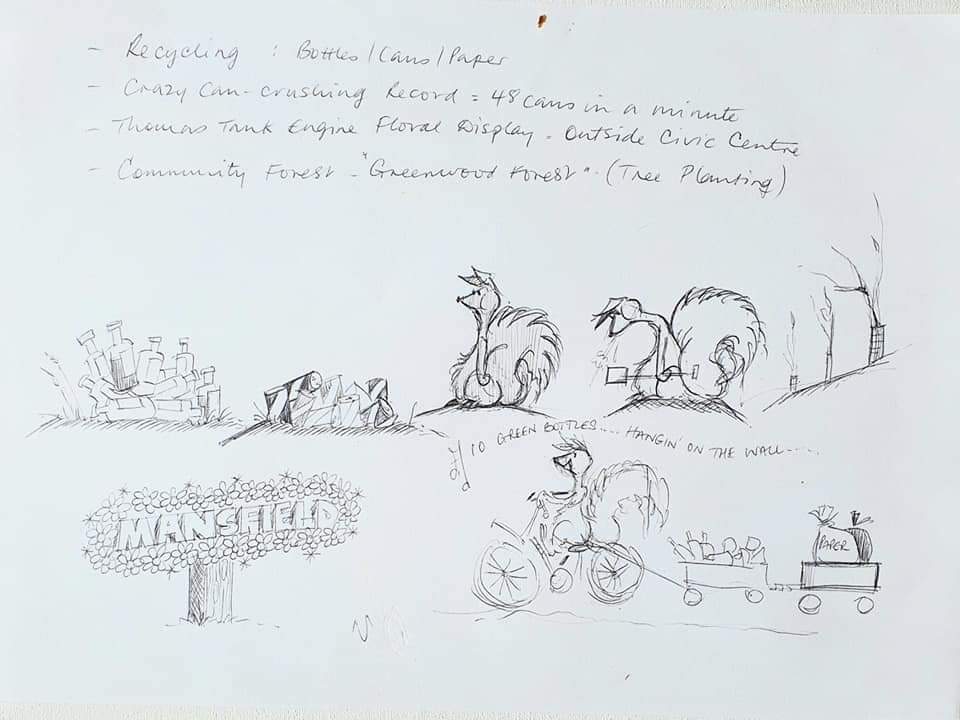 - Recycling : Bottles/Cans/Paper
- Crazy Can-crushing Record = 48 cans in a minute
- Thomas Tank Engine Floral Display - Outside Civic Centre
- Community Forest - "Greenwood Forest" - (Tree Planting)
10 GREEN BOTTLES.... HANGIN' ON THE WALL.....
MANSFIELD
PAPER